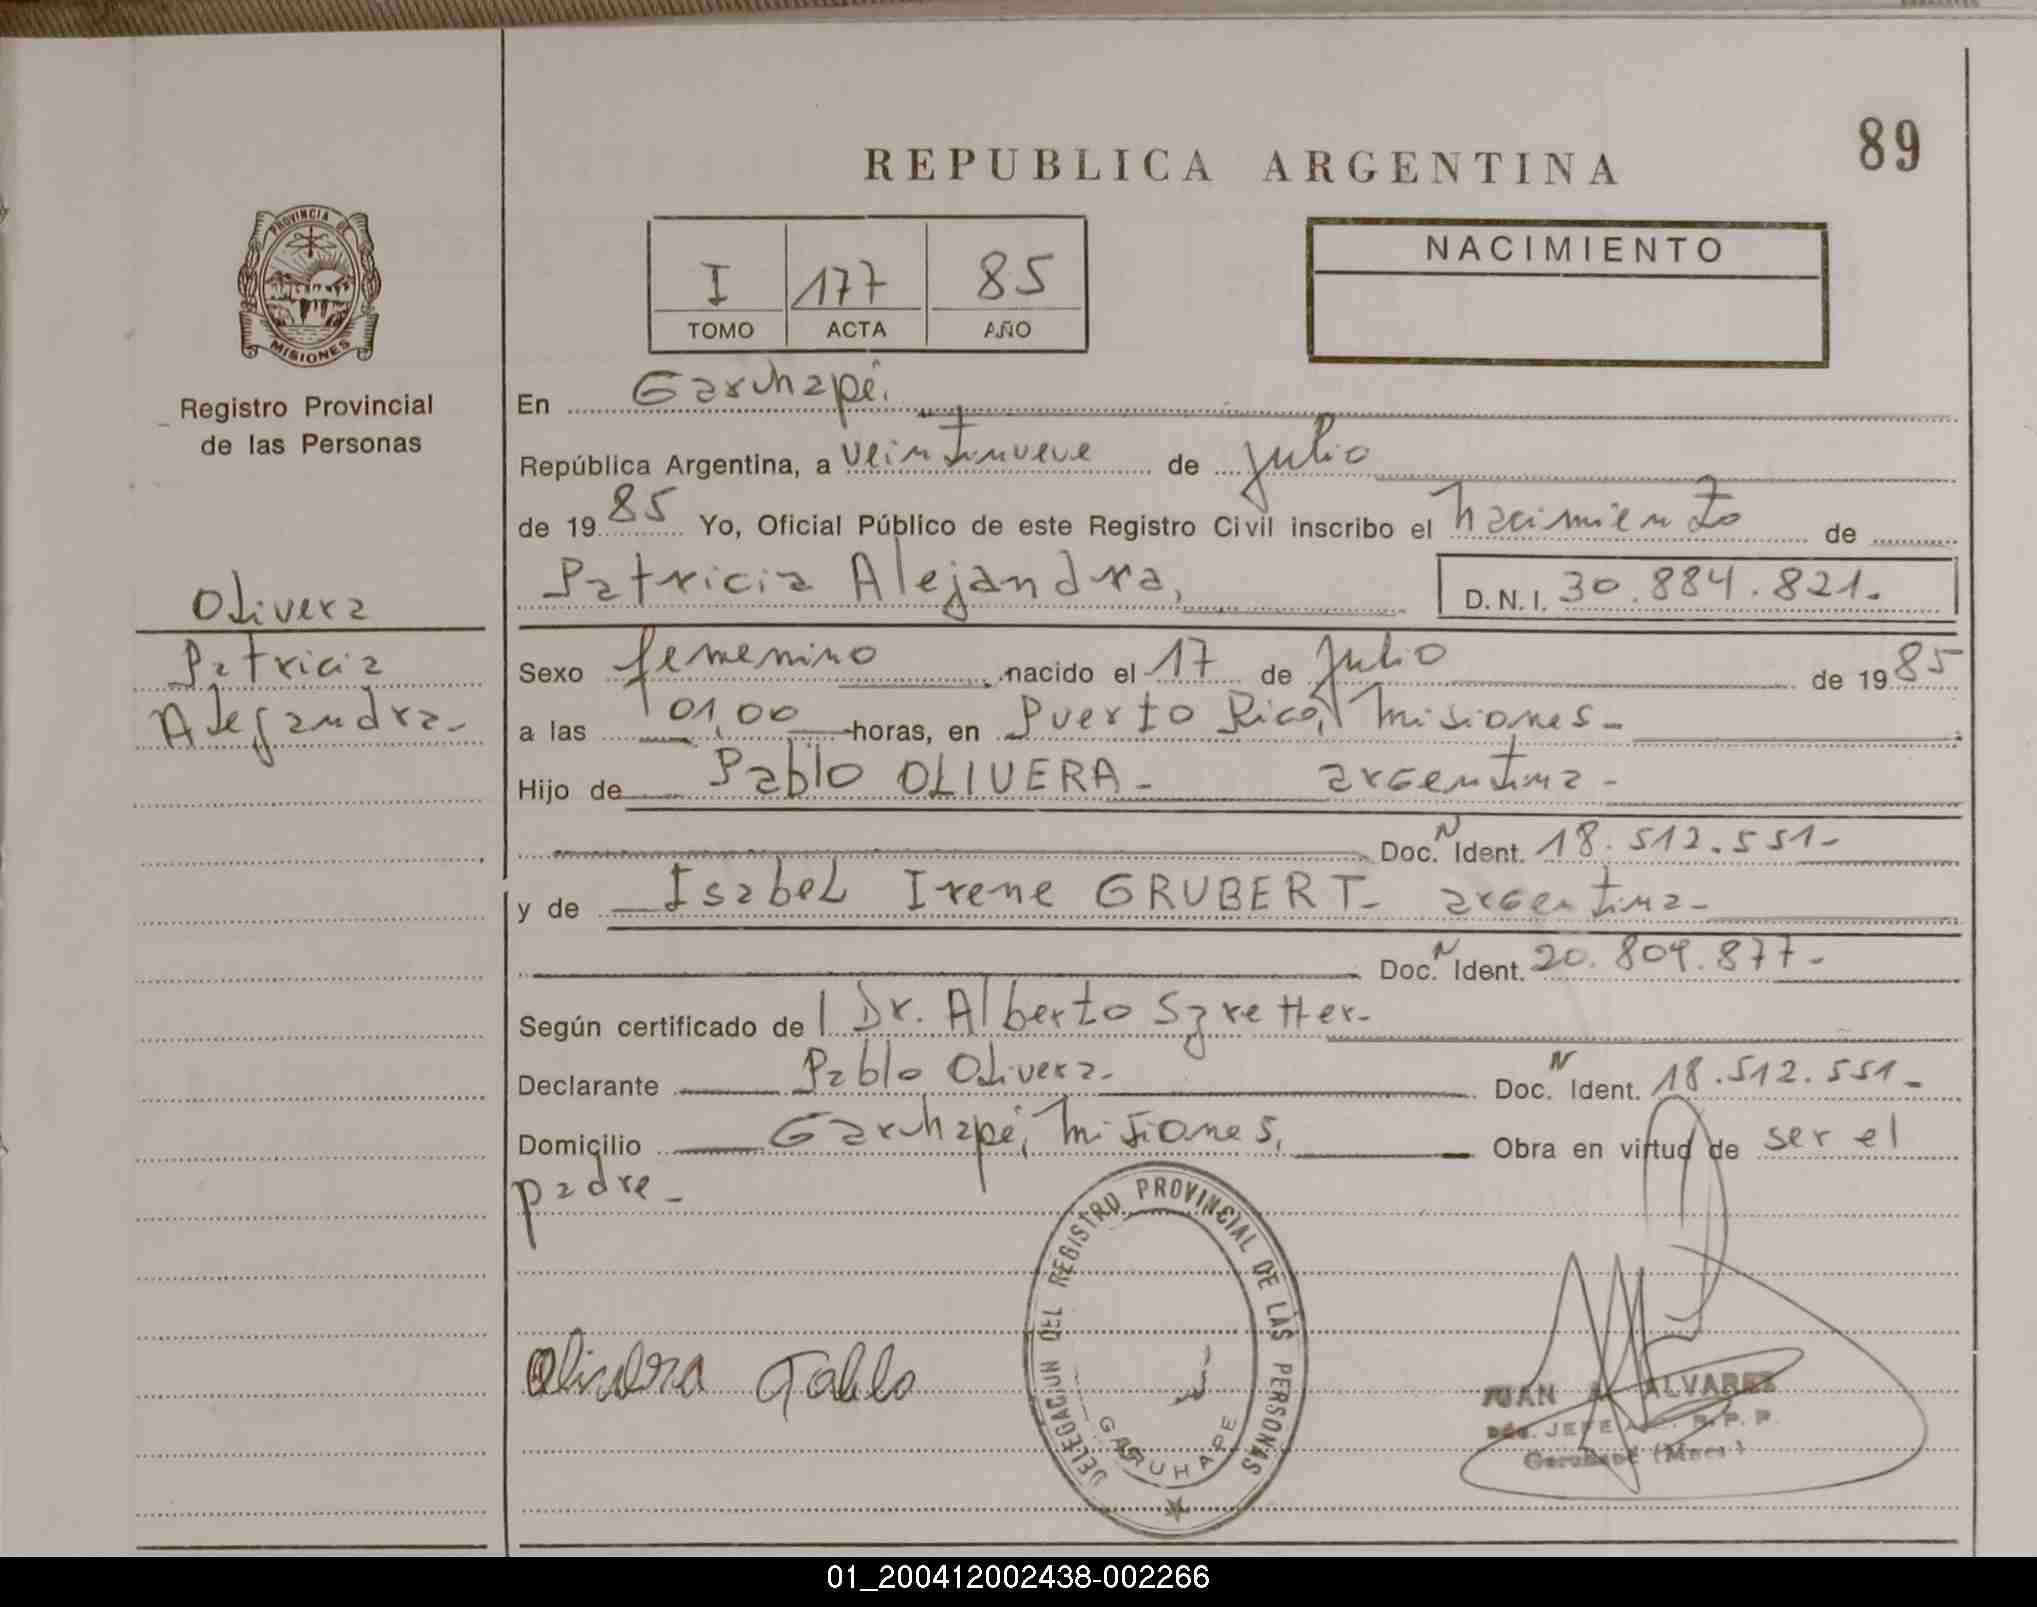 89
REPUBLICA ARGENTINA
PROVINCIA DE
MISIONES
Registro Provincial
de las Personas
I 177 85
TOMO ACTA AÑO
NACIMIENTO
En Garuhapé.
República Argentina, a veintinueve de julio
de 1985 Yo, Oficial Público de este Registro Civil inscribo el nacimiento de
Patricia Alejandra, D.N.I. 30.884.821.-
Olivera
Patricia
Alejandra.-
Sexo femenino nacido el 17 de Julio de 1985
a las 01,00 horas, en Puerto Rico, Misiones-
Hijo de Pablo OLIVERA- argentina-
Doc. N Ident. 18.512.551-
y de Isabel Irene GRUBERT- argentina-
Doc. N Ident. 20.809.877-
Según certificado de Dr. Alberto Szretter-
Declarante Pablo Olivera- Doc. N Ident. 18.512.551-
Domicilio Garuhapé, Misiones, Obra en virtud de ser el
padre-
DELEGACION DEL REGISTRO PROVINCIAL DE LAS PERSONAS
GARUHAPE
Olivera Pablo
JUAN A. ALVAREZ
JEFE R.P.P.
Garuhapé (Mnes)
01_200412002438-002266